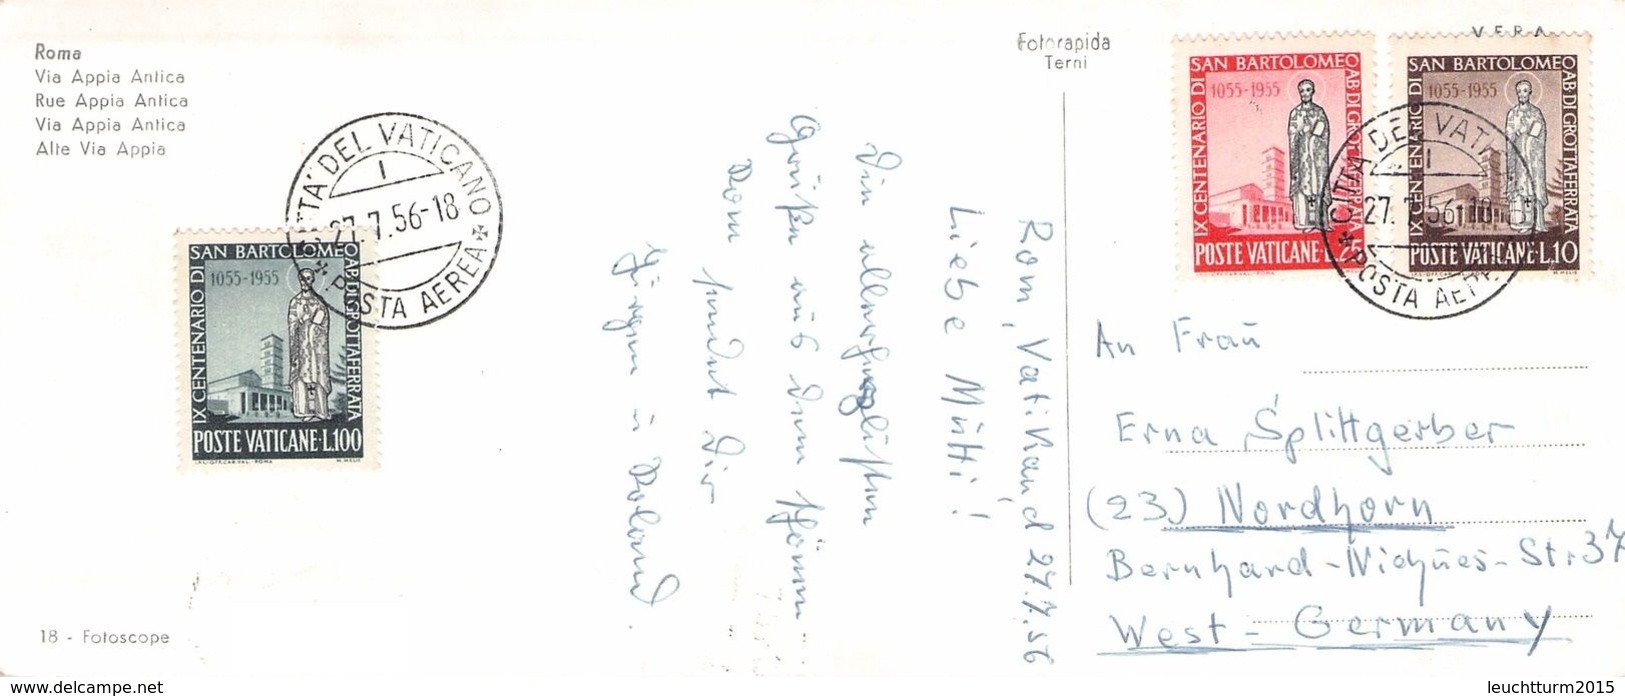 Roma
Via Appia Antica
Rue Appia Antica
Via Appia Antica
Alte Via Appia
CITTA' DEL VATICANO
1
27.7.56-18
POSTA AEREA
IX CENTENARIO DI SAN BARTOLOMEO AB. DI GROTTAFERRATA
1055-1955
POSTE VATICANE·L.100
18 - Fotoscope
Rom, Vatikan, d 27.7.56
Liebe Mutti!
Die allerherzlichsten
Grüße aus dem schönen
Rom sendet Dir
Jürgen u. Roland.
Fotorapida
Terni
VERA
IX CENTENARIO DI SAN BARTOLOMEO AB. DI GROTTAFERRATA
1055-1955
POSTE VATICANE
IX CENTENARIO DI SAN BARTOLOMEO AB. DI GROTTAFERRATA
1055-1955
POSTE VATICANE·L.10
CITTA' DEL VATICANO
27.7.56-18
POSTA AEREA
An Frau
Erna Splittgerber
(23) Nordhorn
Bernhard-Niehues-Str. 37
West-Germany
leuchtturm2015